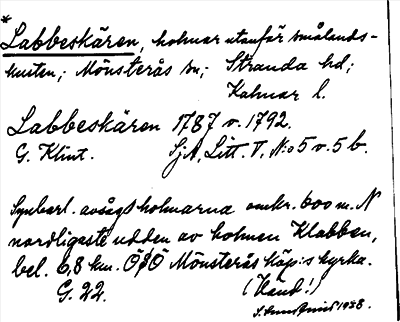 *
Labbeskären, holmar utanför smålands-
kusten; Mönsterås sn; Stranda hd;
Kalmar l.
Labbeskären 1787 v. 1792.
G. Klint. SjA, Litt. V, N:o 5 v. 5 b.
Synbarl. avsågs holmarna omkr. 600 m. N
nordligaste udden av holmen Klabben,
bel. 6,8 km. ÖSÖ Mönsterås köp:s kyrka.
G. 22. (Vänd!)
1928.